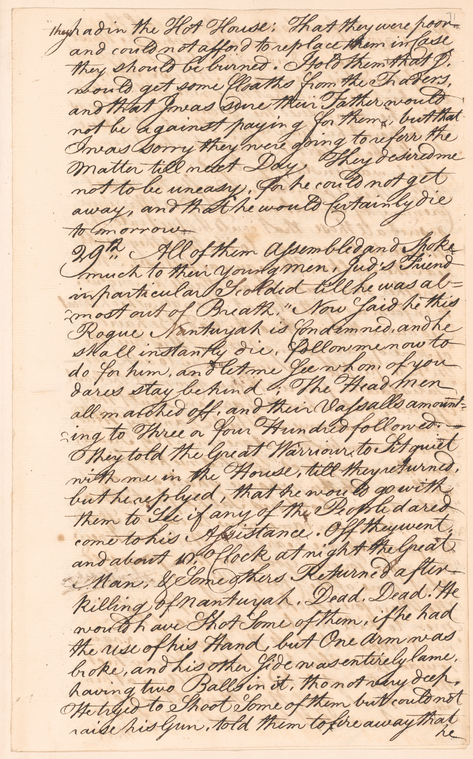 they had in the Hot House; That they were poor
and could not afford to replace them in Case
they should be burned. I told them that I
would get some Cloaths from the Traders,
and that I was sure their Father would
not be against paying for them, but that
I was sorry they were going to referr the
Matter till next Day. They desired me
not to be uneasy, for he could not get
away, and that he would Certainly die
to morrow
29th All of them Assembled and Spoke
much to their young men, Jud's Friend
in particular Scolded till he was al=
most out of Breath. "Now Said he this
Rogue Nantuyah is Condemned, and he
shall instantly die, follow me now to
do for him, and let me See whom of you
dares stay behind. The Head men
all marched off, and their Vassalls amount=
ing to Three or four Hundred followed.
They told the Great Warriour, to Sit quiet
with me in the House, till they returned,
but he replyed, that he would go with
them to See if any of the People dared
come to his Assistance. Off they went,
and about O'Clock at night the Great
Man, & Some others Returned after
killing of Nantuyah, Dead, Dead. He
would have Shot Some of them, if he had
the use of his Hand, but One Arm was
broke, and his other Side was entirely lame,
having two Balls in it, tho not very deep.
He tryed to Shoot Some of them but could not
raise his Gun, told them to fire away that
he